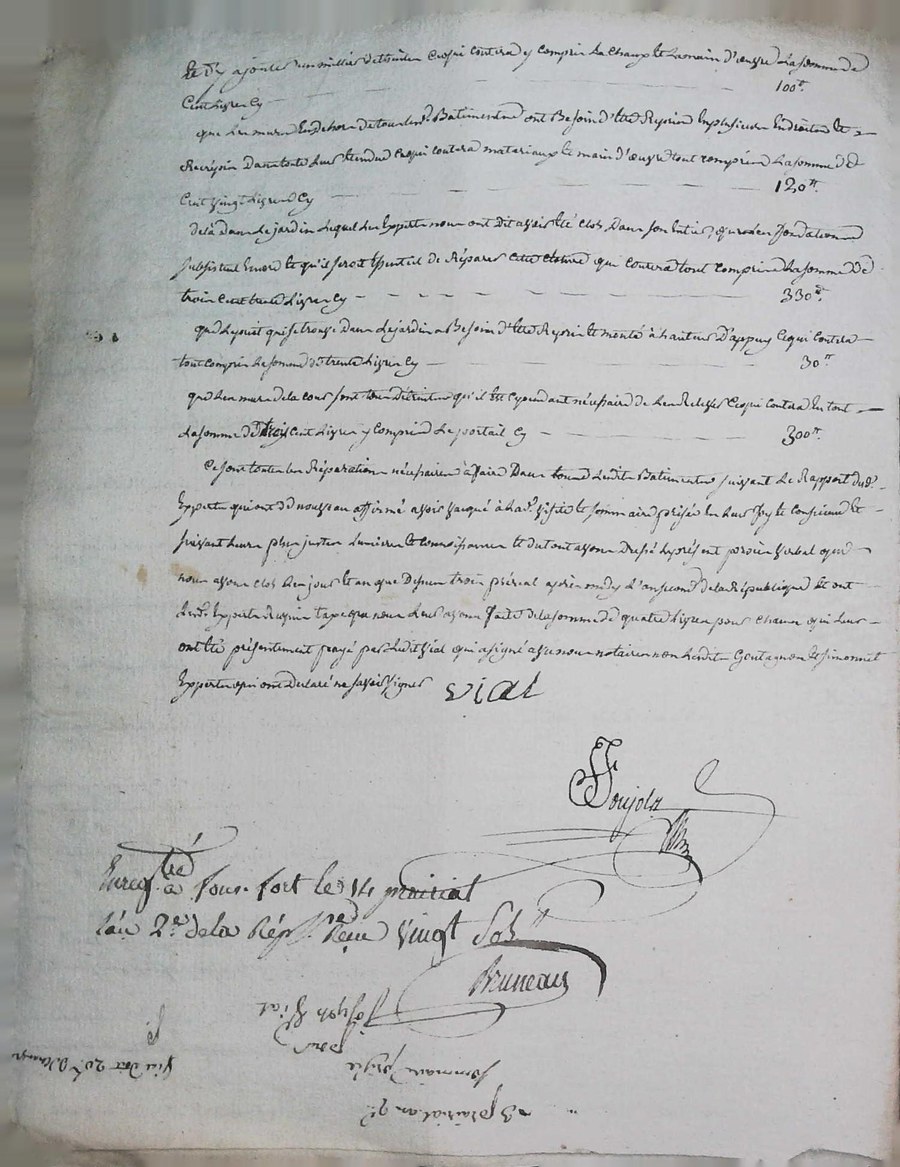 et d'y ajouter un millier de tuiles ce qui coutera y compris la chaux et la main d'œuvre la somme de
Cent livres Cy — 100#.
que les murs en dehors de tous les d. Batiments ont Besoin d'etre Rejoin en plusieurs Endroits et
Recrepin Dans toute leur etendue ce qui coutera materiaux et main d'œuvre tout compris la somme de
Cent vingt Livres Cy — 120#.
delà Dans Le jardin lequel les Experts nous ont Dit avoir été clos Dans son Entier, que les fondations
subsistent Encore et qu'il seroit Essentiel de Réparer cette cloture qui coutera tout compris La somme De
trois cent trente Livres Cy — 330#.
que le puit qui se trouve Dans le jardin a Besoin d'être Rejoin et monté à hauteur D'appuy Ce qui Coutera
tout compris la somme de trente Livres Cy — 30#
que les murs de la cour sont tous Détruits qu'il est Cependant nécessaire de les Relever Ce qui Coutera En tout
La somme de trois Cent Livres y Compris Le portail Cy — 300#.
Ce sont toutes les Réparations nécessaires à faire Dans tous les dits Batiments suivant Le Rapport desd.
Experts qui ont de nouveau affirmé avoir vaqué à lad. visite et sommaire prisée En leur foy et Conscience Et
suivant leurs plus justes Lumieres et Connoissances et du tout avons Dressé le présent procès verbal que
nous avons clos Les jour et an que Dessus trois prérial après midy L'an second de la République Et ont
lesd. Experts Requis taxe que nous Leur avons faite de la somme de quatre Livres pour chacun qui leur
ont été présentement payé par Ledit Vial qui a signé avec nous notaire non lesdits Goutagnon et Simonnet
Experts qui ont Declaré ne savoir signer vial
Soujols
Enreg.tré à fours-fort le 14 prairial
l'an 2e. dela Rép. Reçu vingt Sols
Bruneau
Joseph Vial
pour
sommaire prisée
3 prairial an 2e